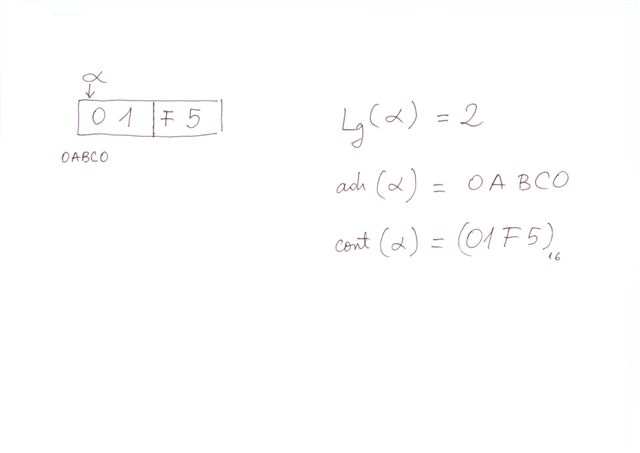 α
01 F5
0ABC0
Lg(α) = 2
adr(α) = 0ABC0
cont(α) = (01F5)₁₆